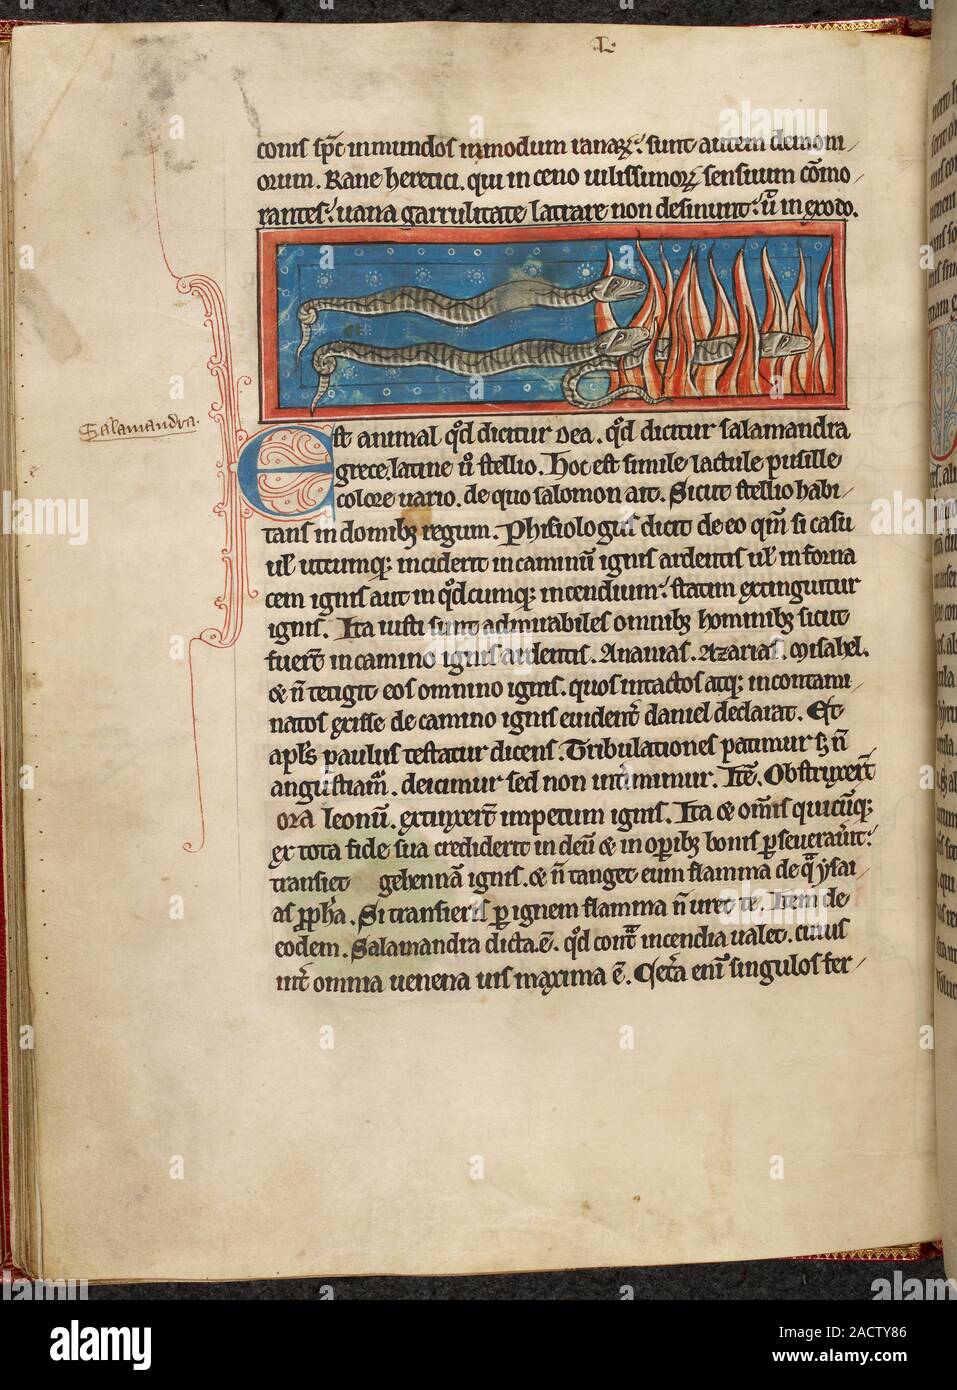 L
conis sp̃c inmundos inmodum ranaꝝ. sunt autem demoni
orum. Rane heretici. qui inceno uilissimoꝝ sensuum cõmo
rantes. uana garrulitate latrare non desinunt. ũ inexodo.
Salamandra.
Est animal qd̃ dicitur dea. qd̃ dicitur salamandra
grece. latine ũ stellio. Hoc est simile lactule pusille
colore uario. de quo salomon ait. Sicut stellio habi
tans in domibꝫ regum. Phisiologus dicit de eo qm̃ si casu
ul̃ utcumqꝫ inciderit incaminũ ignis ardentis ul̃ in forna
cem ignis aut in qd̃cumqꝫ incendium. statim extinguitur
ignis. Ita iusti sunt admirabiles omnibꝫ hominibꝫ sicut
fuer̃t incamino ignis ardentis. Ananias. Azarias. Misahel.
& ñ tetigit eos omnino ignis. quos intactos atqꝫ incontami
natos exisse de camino ignis euident̃ daniel declarat. Et
apl̃s paulus testatur dicens. Tribulationes patimur sꝫ ñ
angustiam̃. deicimur sed non intimimur. Itẽ. Obstruxer̃t
ora leonũ. extinxer̃t impetum ignis. Ita & om̃s quicũqꝫ
ex tota fide sua crediderit in deũ & in oꝑibꝫ bonis ꝑseuerauĩt.
transiet gehennã ignis. & ñ tanget eum flamma de qua ysai
as ꝓph̃a. Si transieris ꝑ ignem flamma ñ uret te. Item de
eodem. Salamandra dicta ẽ. qd̃ contᵃ incendia ualet. cuius
int̃ omnia uenena uis maxima ẽ. Cetᵃ eni᷒ singulos fer
alamy
Image ID: 2ACTY86
www.alamy.com